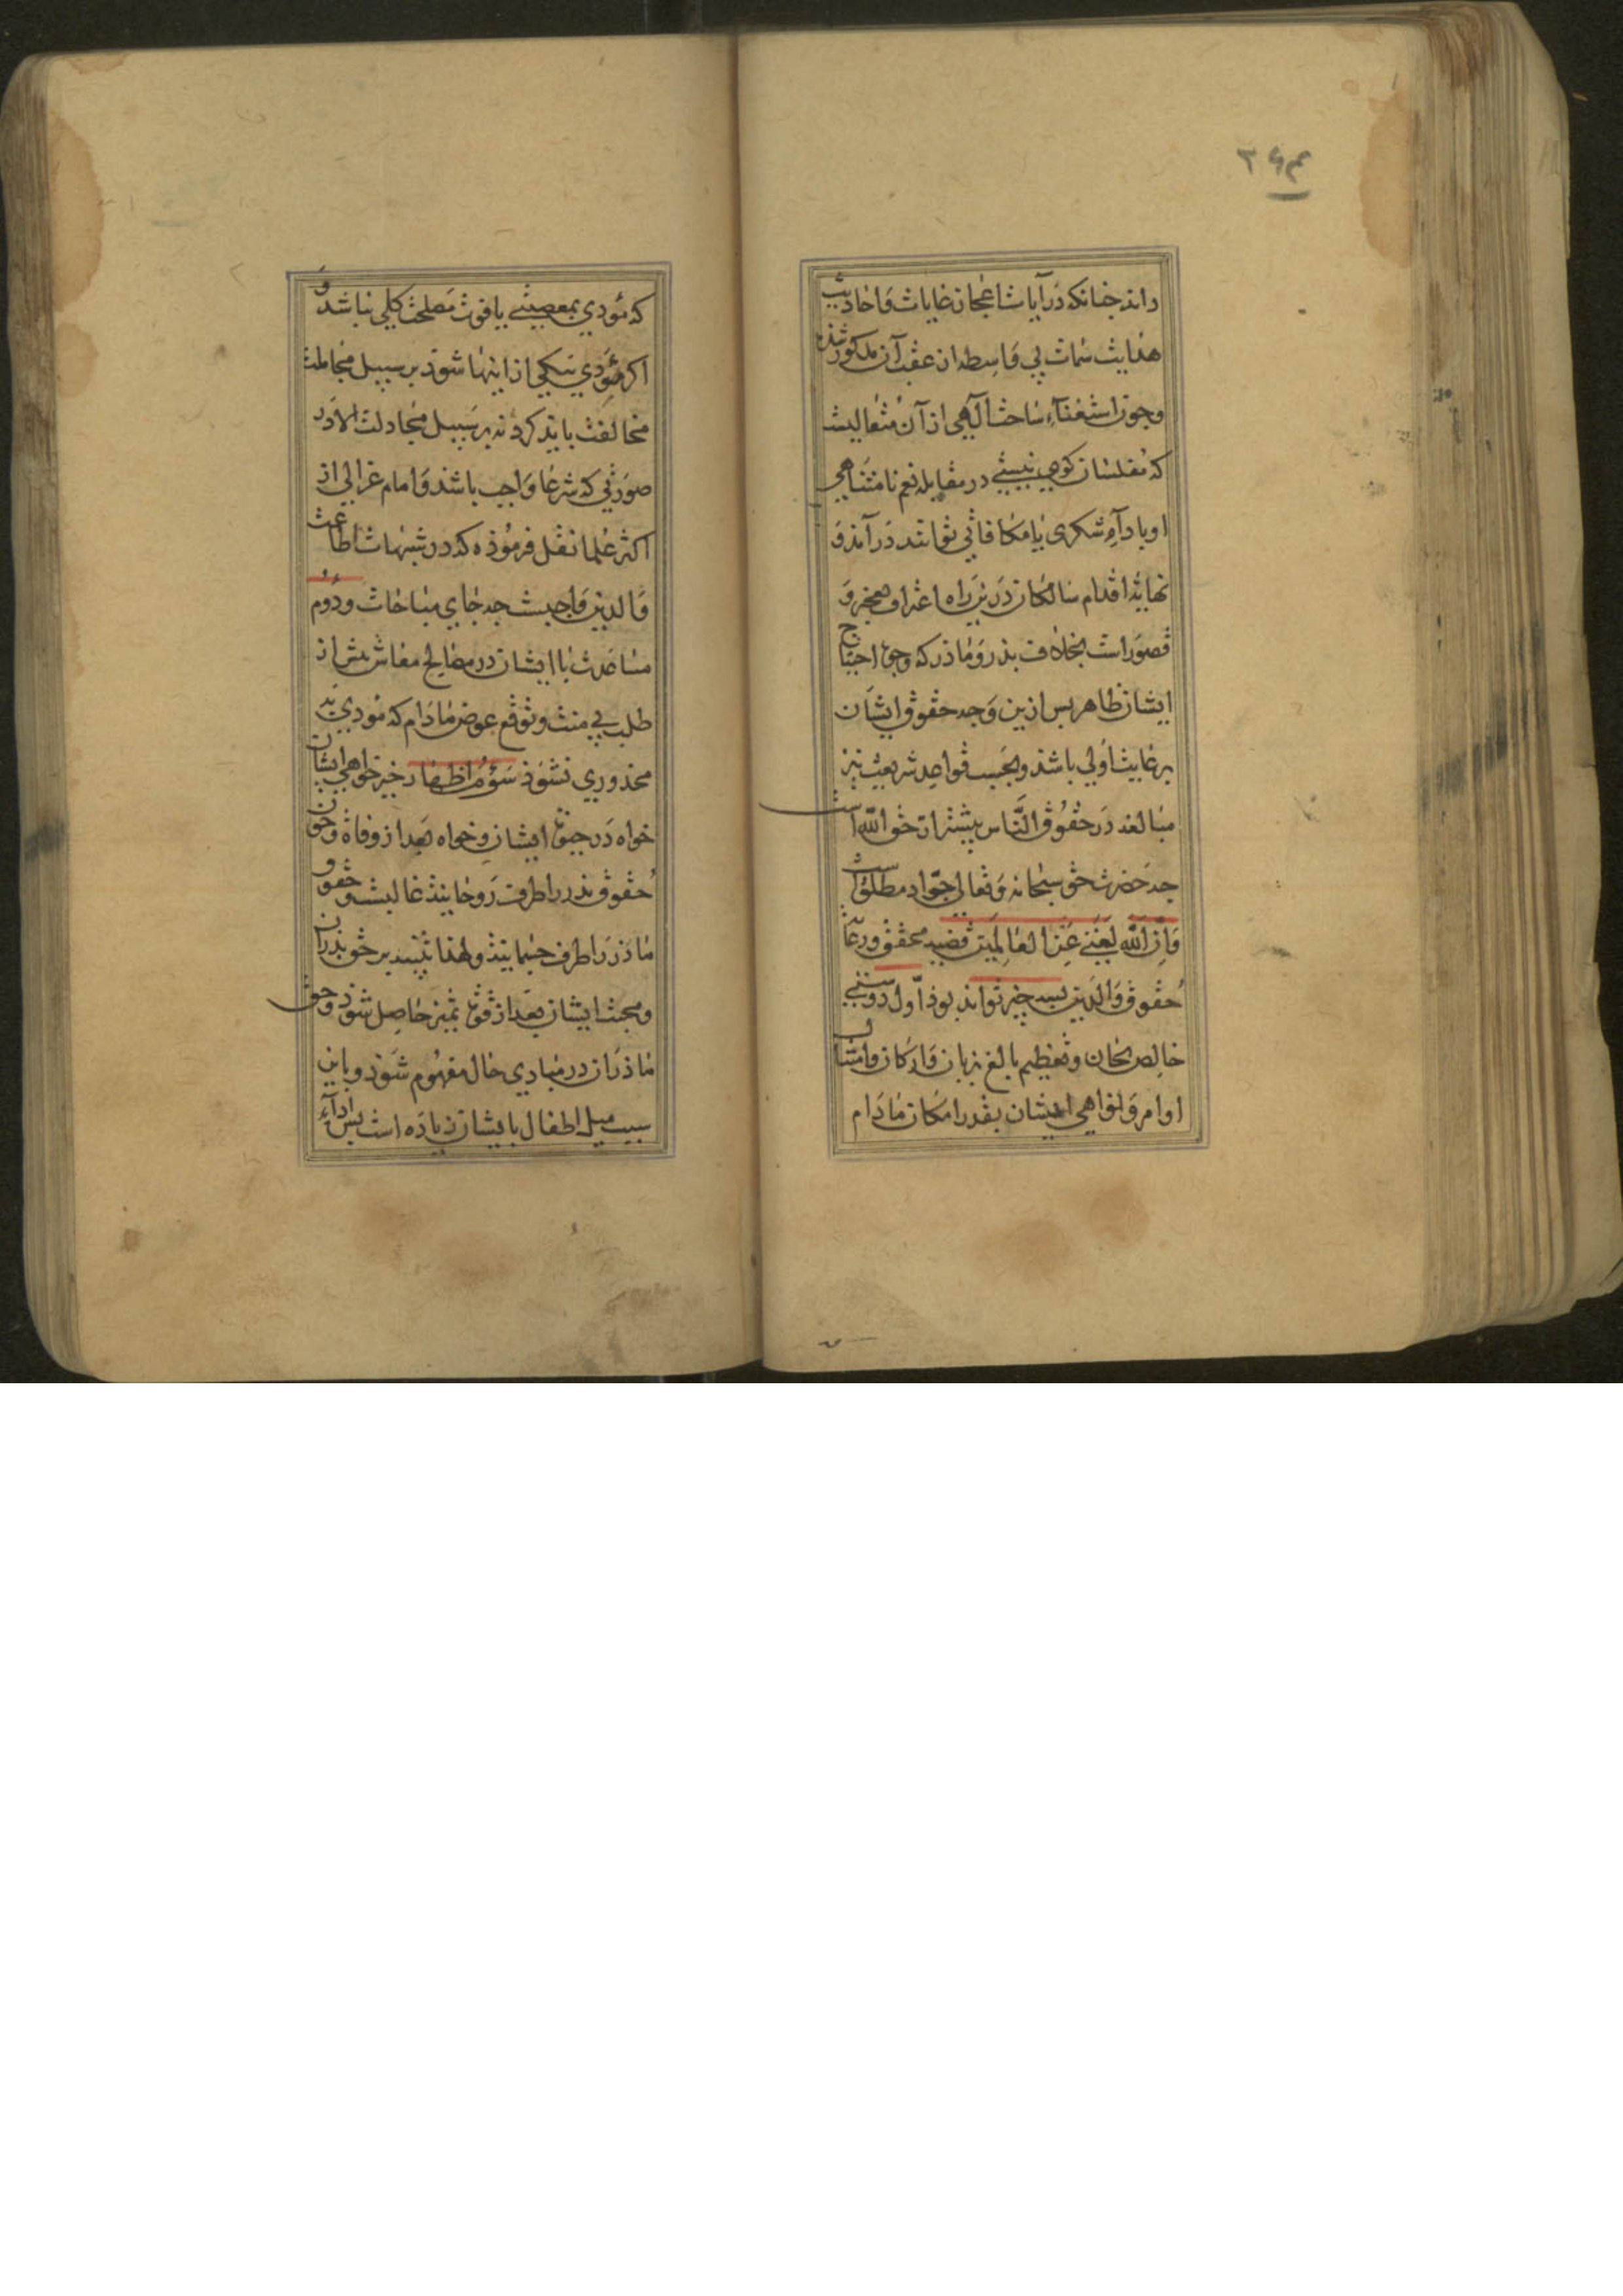 ۲۶۴
داند جنانکه در آیات اعجاز غایات و احادیث
هدایت سمات بی واسطه از عقب آن مذکور شده
و جون استغناء ساحت الهی از آن متعالیست
که مفلسان کوی نیستی در مقابله نعم نامتناهی
او باداء شکری یا مکافاتی توانند در آمد و
نهایة اقدام سالکان درین راه اعتراف بعجز و
قصور است بخلاف بدر و ماذر که وجوه احتیاج
ایشان ظاهر بس ازین وجه حقوق ایشان
برعایت اولی باشد و بحسب قواعد شریعت نیز
مبالغه در حقوق الناس بیشتر از حق الله است
جه حضرت حق سبحانه و تعالی جواد مطلق است
وان الله لغنی عن العالمین قضیه محقق و رعایت
حقوق والدین بسه چیز تواند بوذ اول دوستی
خالص بجان و تعظیم بالغ بزبان و ارکان و امتثال
اوامر و نواهی ایشان بقدر امکان ماذام
که مؤدی بمعصیتی یا فوت مصلحت کلی نباشد و
اکر مؤدی بیکی از اینها شود بر سبیل مجاملت
مخالفت باید کرد نه بر سبیل مجادلت الا در
صورتی که شرعا واجب باشد و امام غزالی از
اکثر علما نقل فرموذه که در شبهات اطاعت
والدین واجبست جه جای مباحات و دوم
مساعدت با ایشان در مصالح معاش بیش از
طلب بی منت و توقع عوض ماذام که مؤدی به
محذوری نشوذ سوم اظهار خیر خواهی ایشان
خواه در حیوة ایشان و خواه بعد از وفاة و جون
حقوق بذر را طرف روحانیت غالبست و حقوق
ماذر را طرف جسمانیت و لهذا تنبیه بر حق بذران
و محبت ایشان بعد از قوة تمیز حاصل شوذ و حق
ماذران در مبادی حال مفهوم شوذ و باین
سبب میل اطفال بایشان زیاده است بس اداء